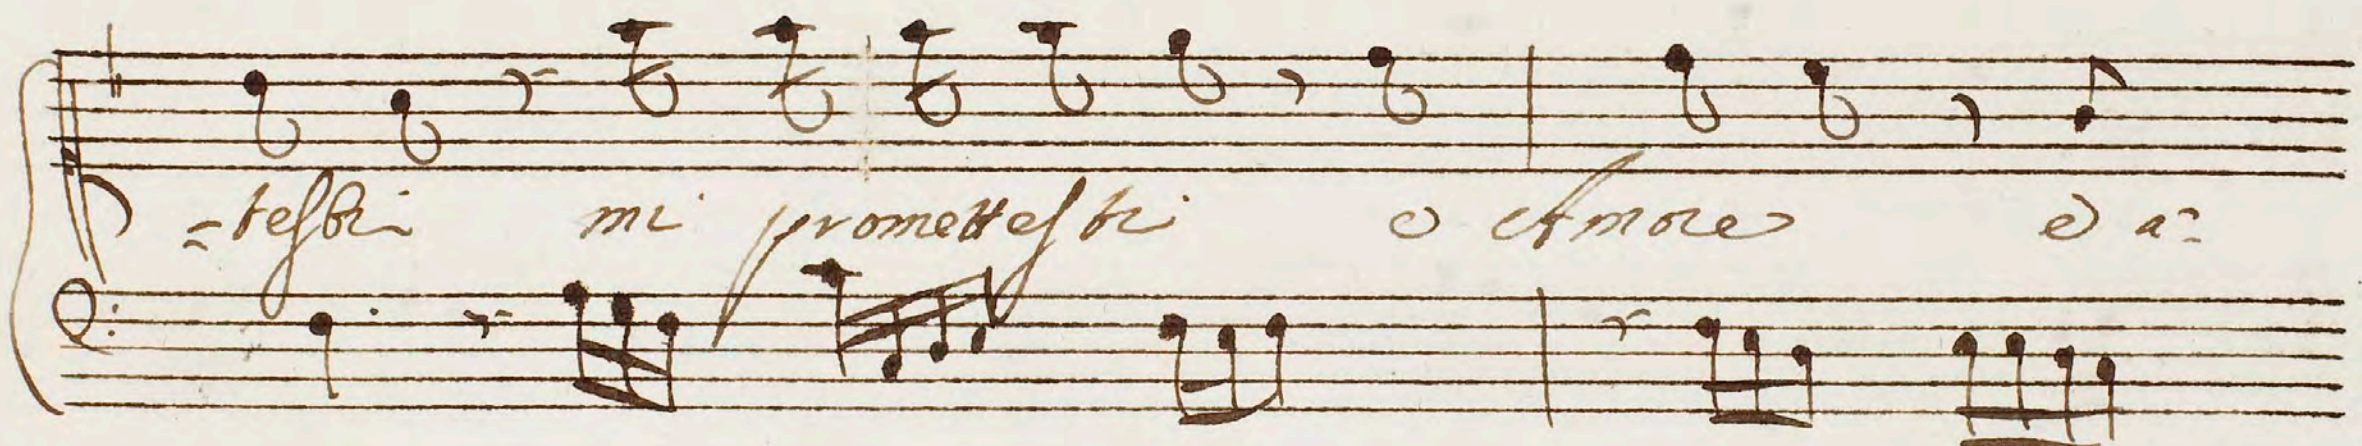 =testi mi promettesti e Amore e a=